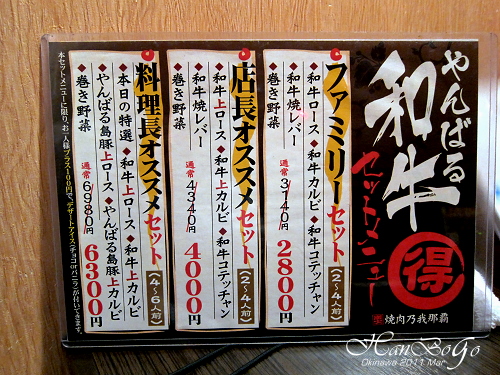 やんばる
和牛
セットメニュー
得
焼肉乃我那覇
ファミリーセット（2～4人前）
◆和牛ロース◆和牛カルビ◆和牛コテッチャン
◆和牛焼レバー
◆巻き野菜
通常3140円
2800円
店長オススメセット（2～4人前）
◆和牛上ロース◆和牛上カルビ◆和牛コテッチャン
◆和牛焼レバー
◆巻き野菜
通常4340円
4000円
料理長オススメセット（4～6人前）
◆本日の特選◆和牛上ロース◆和牛上カルビ
◆やんばる島豚上ロース◆やんばる島豚上カルビ
◆巻き野菜
通常6980円
6300円
本セットメニューに限り、お一人様プラス100円で、デザートアイス(チョコorバニラ)が付いてきます。
HanBoGo
Okinawa 2011 Mar